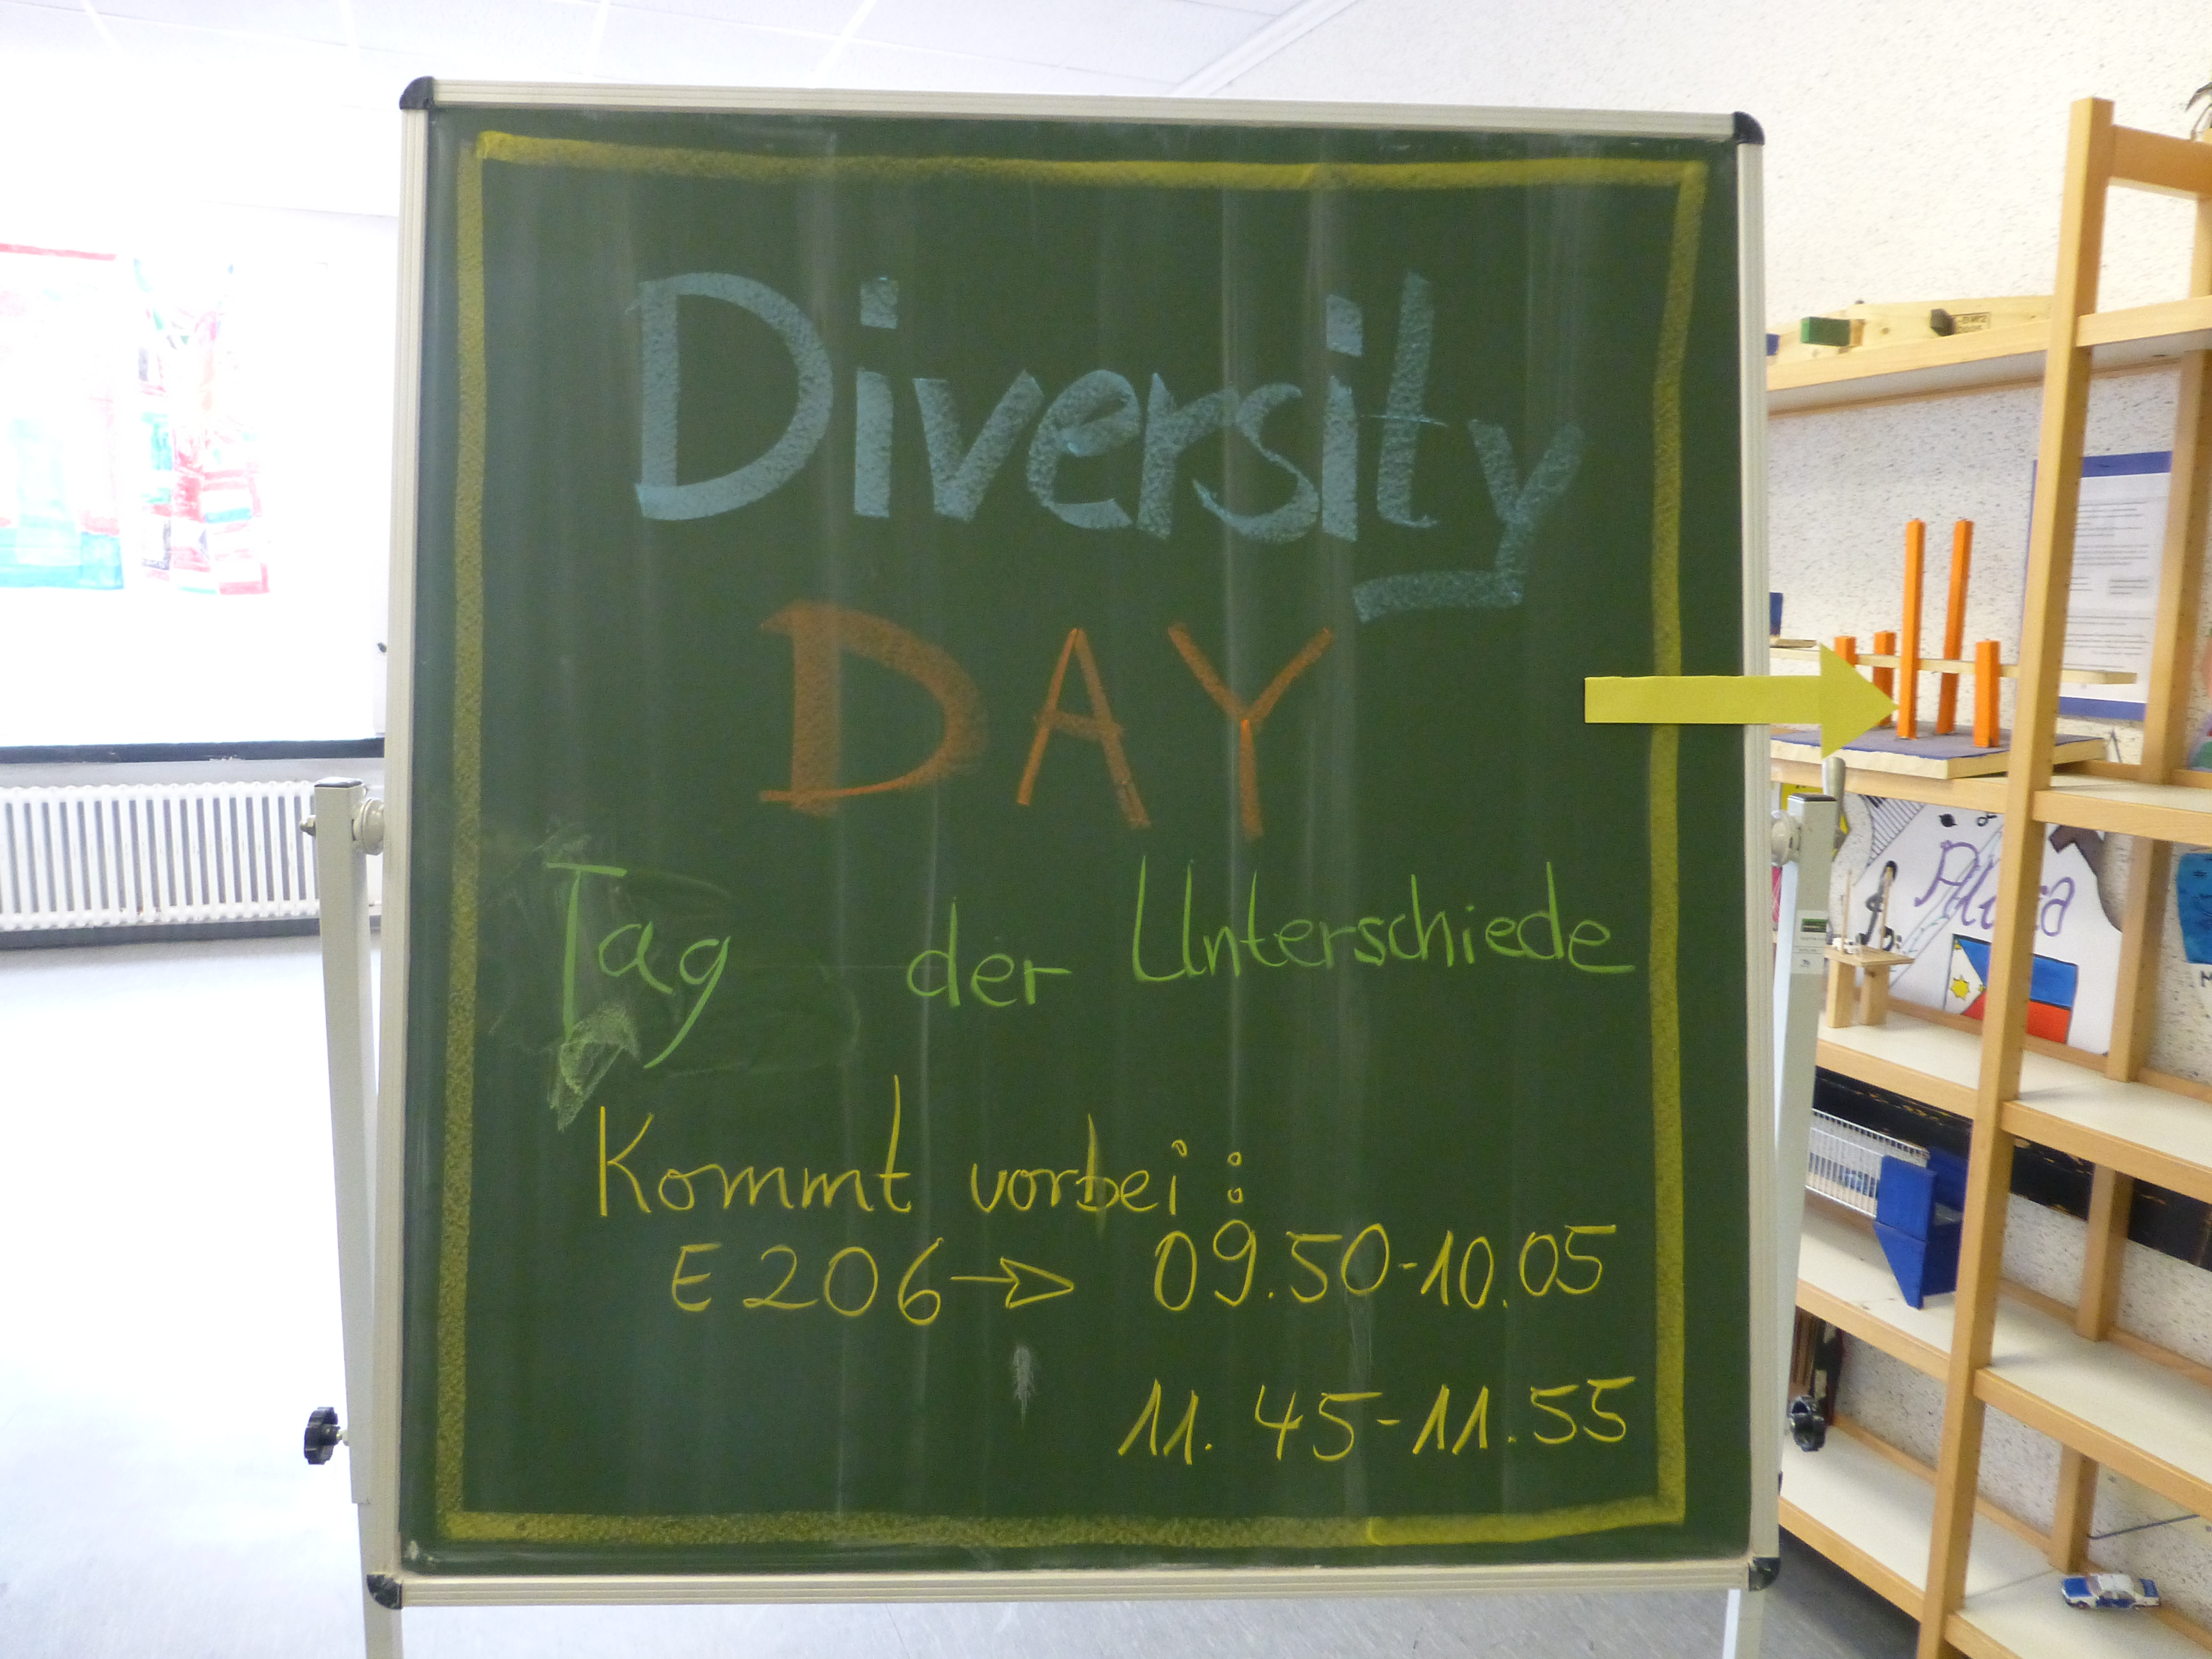 Diversity
DAY
Tag der Unterschiede
Kommt vorbei:
E206 → 09.50-10.05
11.45-11.55